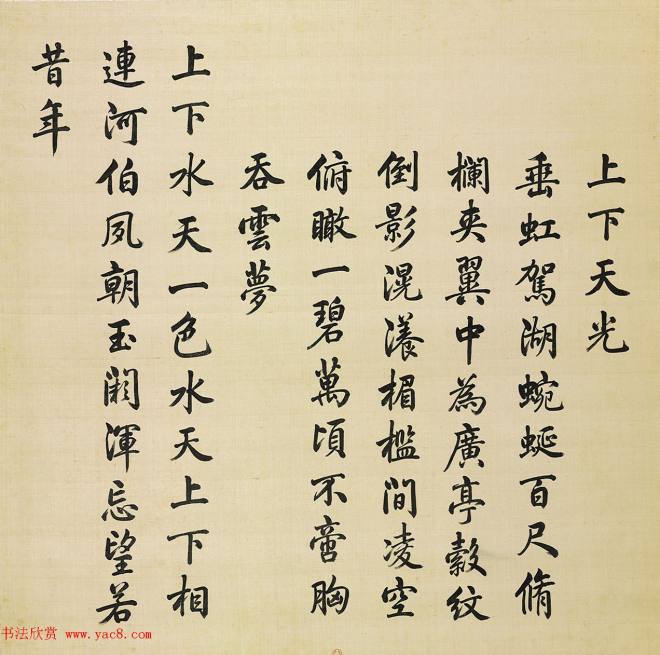 上下天光
垂虹駕湖蜿蜒百尺脩
欄夾翼中為廣亭縠紋
倒影滉瀁楣檻間凌空
俯瞰一碧萬頃不啻胸
吞雲夢
上下水天一色水天上下相
連河伯夙朝玉闕渾忘望若
昔年
书法欣赏 www.yac8.com